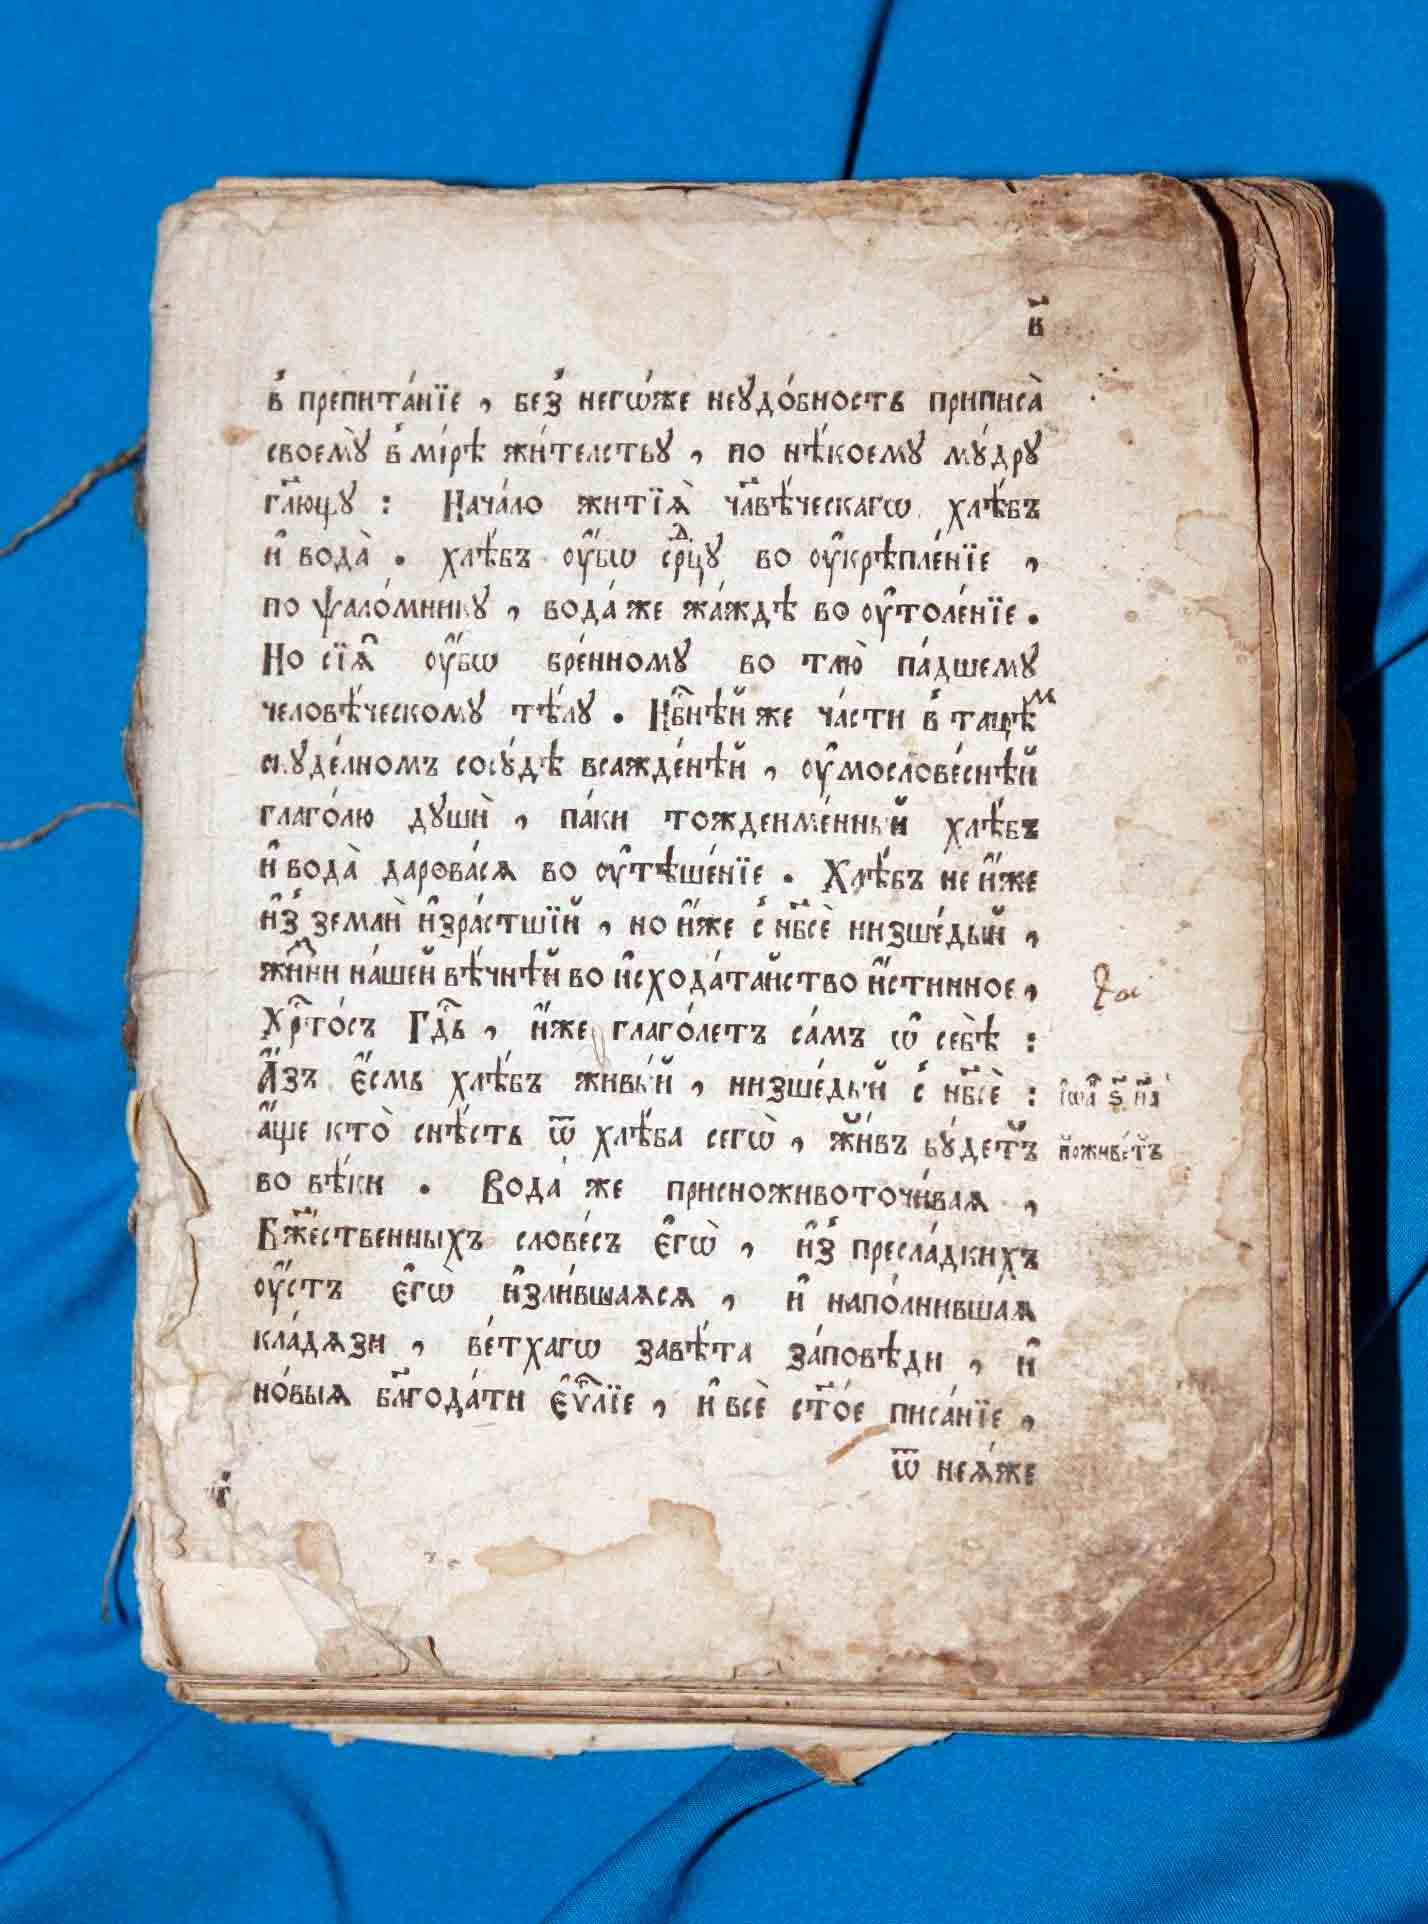 в҃
в̾ препита́нїе , без̾ негѡ́же неꙋдо́бность приписа̀
своемꙋ̀ в̾ мі́рѣ жи́телстьꙋ , по нѣ́коемꙋ мꙋ́дрꙋ
гл҃ющꙋ : Нача́ло житїѧ̀ чл҃вѣ́ческагѡ хлѣ́бъ
и҆ вода̀ . хлѣ́бъ ᲂу҆́бѡ срⷣцꙋ во ᲂу҆крѣпле́нїе ,
по ѱало́мникꙋ , вода́ же жа́ждѣ во ᲂу҆толе́нїе .
Но сїѧ҆̀ ᲂу҆́бѡ бре́нномꙋ во тлю̀ па́дшемꙋ
человѣ́ческомꙋ тѣ́лꙋ . Нб҃нѣй же ча́сти в̾ тащѣⷨ
скꙋде́лномъ сосꙋ́дѣ всажде́нѣй , ᲂу҆мослове́снѣй
глаго́лю дꙋшѝ , па́ки тожденме́нный хлѣ́бъ
и҆ вода̀ дарова́сѧ во ᲂу҆тѣше́нїе . Хлѣ́бъ не и҆́же
и҆з̾ землѝ и҆зра́стшїй , но и҆́же с̾ нб҃сѐ низше́дый ,
жи́зни на́шей вѣ́чнѣй во и҆схода́тайство и҆́стинное ,
Хрⷭ҇то́съ Гдⷭ҇ь , и҆́же глаго́летъ са́мъ ѡ҆ себѣ̀ :
А҆́зъ є҆́смь хлѣ́бъ живы́й , низше́дый с̾ нб҃сѐ : і҆ѡа҃ ѕ҃ н҃а
а҆́ще кто̀ снѣ́сть ѿ хлѣ́ба сегѡ̀ , жи́въ бꙋ́детъ поживе́тъ
во вѣ́ки . Вода́ же присноживоточи́ваѧ ,
Бж҃е́ственныхъ слове́съ є҆гѡ̀ , и҆з̾ пресла́дкихъ
ᲂу҆́стъ є҆гѡ̀ и҆зли́вшаѧсѧ , и҆ напо́лнившаѧ
кла́дѧзи , ве́тхагѡ завѣ́та за́повѣди , и҆
но́выѧ бл҃года́ти є҆ѵⷢ҇лїе , и҆ всѐ ст҃о́е писа́нїе ,
ѿ неѧ́же